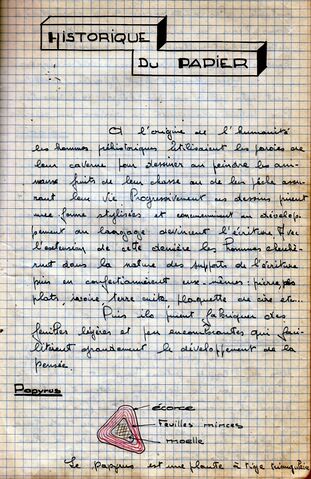 HISTORIQUE
DU PAPIER
A l'origine de l'humanité
les hommes préhistoriques utilisaient les parois de
leur caverne pour dessiner ou peindre les ani-
maux fruits de leur chasse ou de leur pêche assu-
rant leur vie. Progressivement ces dessins prirent
une forme stylisées et concurremment au dévelop-
pement du langage devinrent l'écriture. Avec
l'extension de cette dernière les hommes cherchè-
rent dans la nature des supports de l'écriture
puis en confectionnèrent eux-mêmes : pierres
plats, ivoire, terre cuite, plaquette de cire etc...
Puis ils purent fabriquer des
feuilles légères et peu encombrantes qui faci-
litèrent grandement le développement de la
pensée.
Papyrus
écorce
Feuilles minces
moelle
Le papyrus est une plante à tige triangulaire